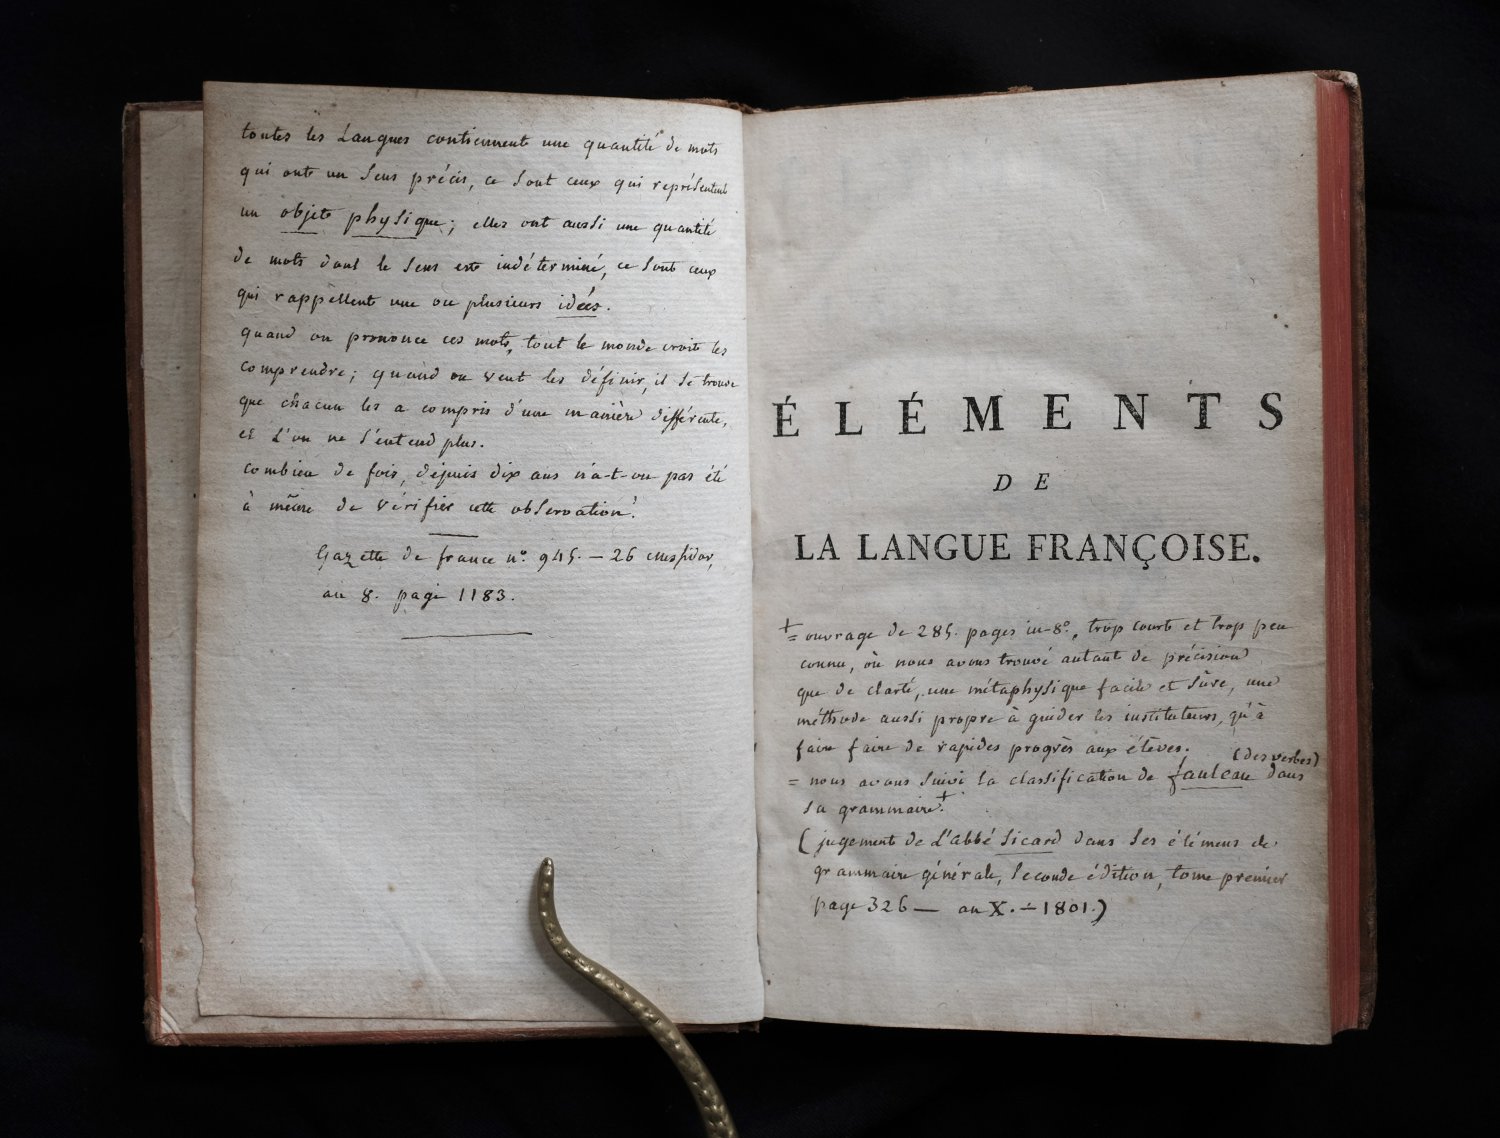 toutes les Langues contiennent une quantité de mots
qui ont un sens précis, ce sont ceux qui représentent
un objet physique; elles ont aussi une quantité
de mots dont le sens est indéterminé, ce sont ceux
qui rappèllent une ou plusieurs idées.
quand on prononce ces mots, tout le monde croit les
comprendre; quand on veut les définir, il se trouve
que chacun les a compris d'une manière différente,
et L'on ne s'entend plus.
combien de fois, depuis dix ans n'a-t-on pas été
à même de vérifier cette observation?
Gazette de france nº. 945. — 26 messidor,
an 8. page 1183.
ÉLÉMENTS
DE
LA LANGUE FRANÇOISE.
+ = ouvrage de 285. pages in-8º., trop court et trop peu
connu, où nous avons trouvé autant de précision
que de clarté, une métaphysique facile et sûre, une
méthode aussi propre à guider les instituteurs, qu'à
faire faire de rapides progrès aux élèves.
(des verbes)
= nous avons suivi la classification de fauleau dans
sa grammaire +.
(jugement de L'abbé Sicard dans ses élémens de
grammaire générale, seconde édition, tome premier
page 326 — an X. — 1801.)